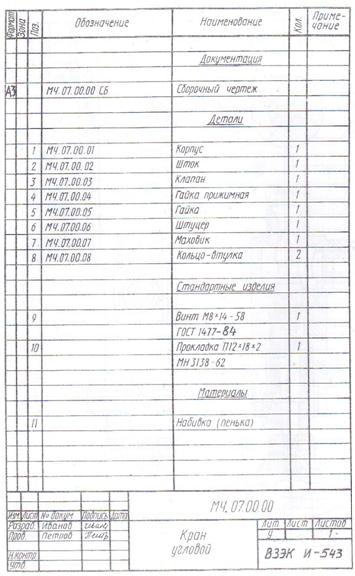 Формат Зона Поз. Обозначение Наименование Кол. Приме-
чание
Документация
А3 МЧ.07.00.00 СБ Сборочный чертеж
Детали
1 МЧ.07.00.01 Корпус 1
2 МЧ.07.00.02 Шток 1
3 МЧ.07.00.03 Клапан 1
4 МЧ.07.00.04 Гайка прижимная 1
5 МЧ.07.00.05 Гайка 1
6 МЧ.07.00.06 Штуцер 1
7 МЧ.07.00.07 Маховик 1
8 МЧ.07.00.08 Кольцо-втулка 2
Стандартные изделия
9 Винт М8×14-58 1
ГОСТ 1477-84
10 Прокладка П12×18×2 1
МН 3138-62
Материалы
11 Набивка (пенька)
МЧ.07.00.00
Изм Лист № докум Подпись Дата
Разраб. Иванов
Пров. Петров
Н.контр
Утв.
Кран
угловой
Лит. Лист Листов
У 1
ВЗЭК И-543